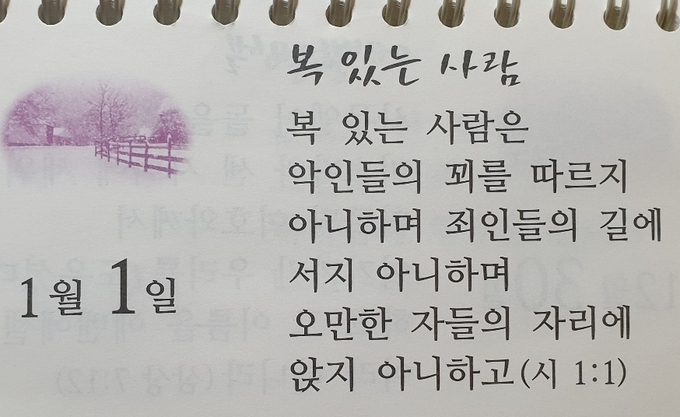 복 있는 사람
복 있는 사람은
악인들의 꾀를 따르지
아니하며 죄인들의 길에
서지 아니하며
오만한 자들의 자리에
앉지 아니하고(시 1:1)
1월 1일